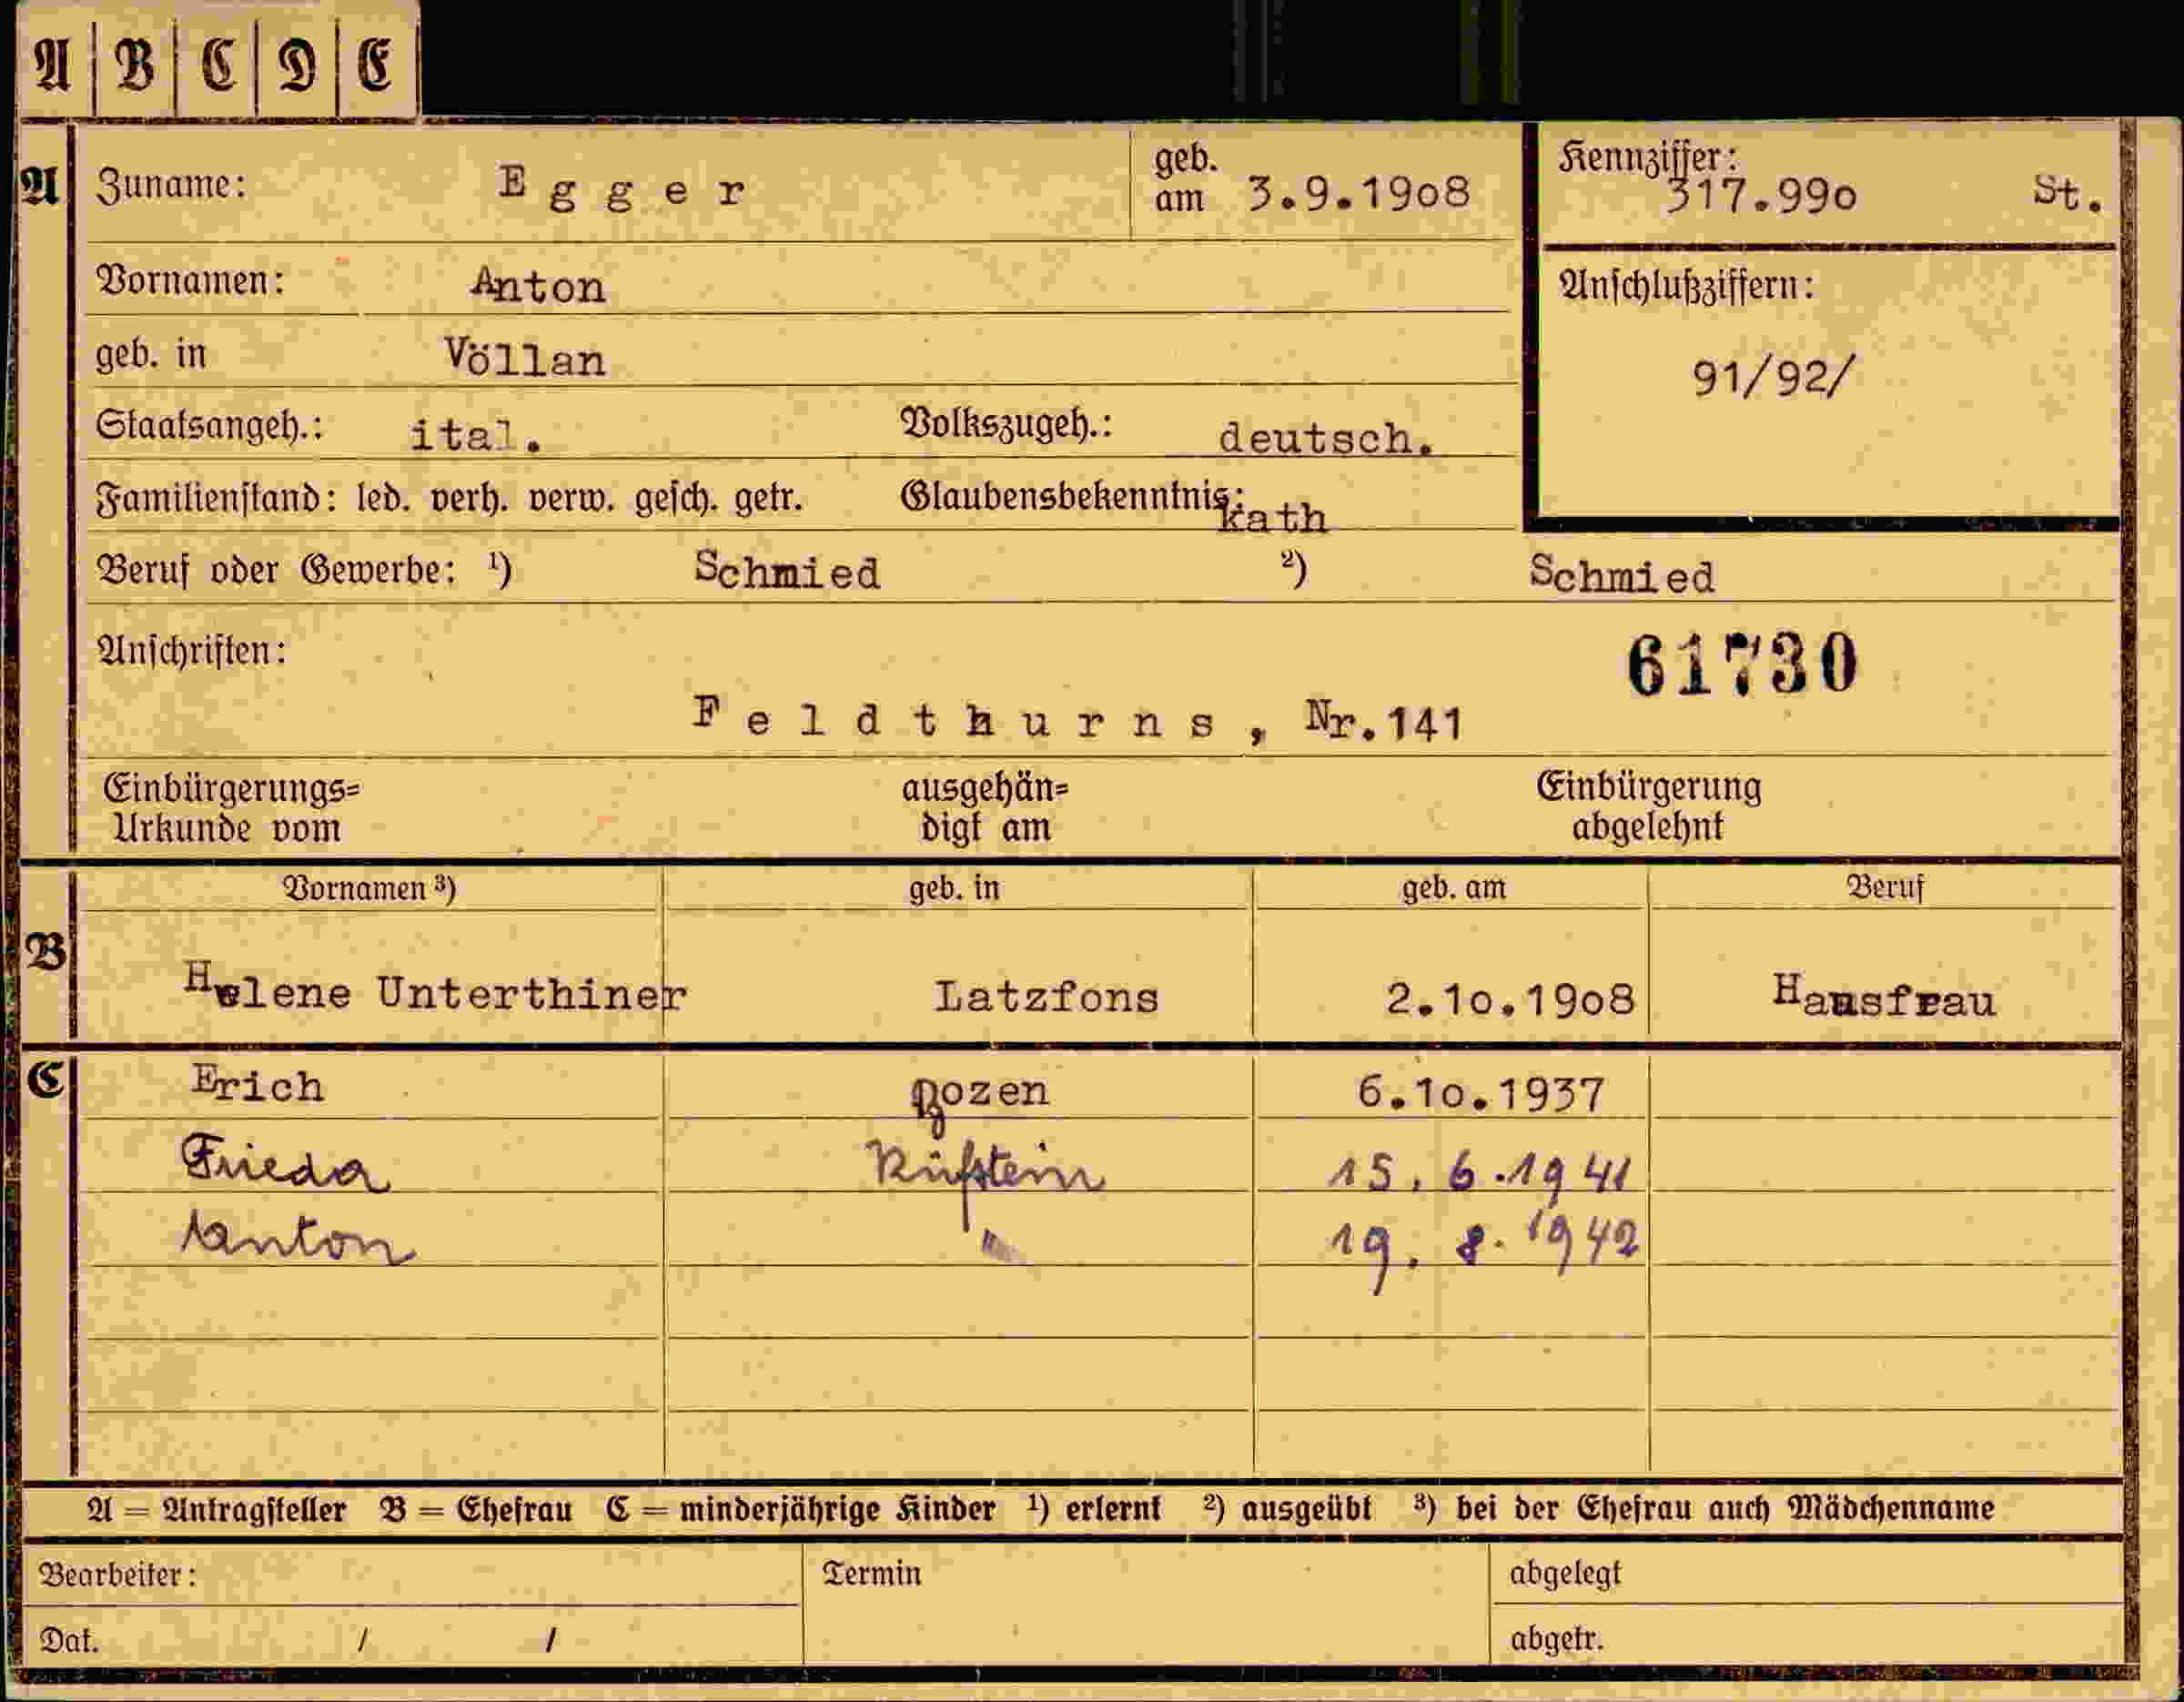 A B C D E
A Zuname: Egger geb. am 3.9.1908 Kennziffer: 317.990 St.
Vornamen: Anton Anschlußziffern:
geb. in Völlan 91/92/
Staatsangeh.: ital. Volkszugeh.: deutsch.
Familienstand: led. verh. verw. gesch. getr. Glaubensbekenntnis: kath
Beruf oder Gewerbe: ¹) Schmied ²) Schmied
Anschriften: 61730
Feldthurns, Nr.141
Einbürgerungs= ausgehän= Einbürgerung
Urkunde vom digt am abgelehnt
Vornamen ³) geb. in geb. am Beruf
B Helene Unterthiner Latzfons 2.10.1908 Hausfrau
C Erich Bozen 6.10.1937
Frieda Kufstein 15.6.1941
Anton " 19.8.1942
A = Antragsteller B = Ehefrau C = minderjährige Kinder ¹) erlernt ²) ausgeübt ³) bei der Ehefrau auch Mädchenname
Bearbeiter: Termin abgelegt
Dat. / / abgetr.